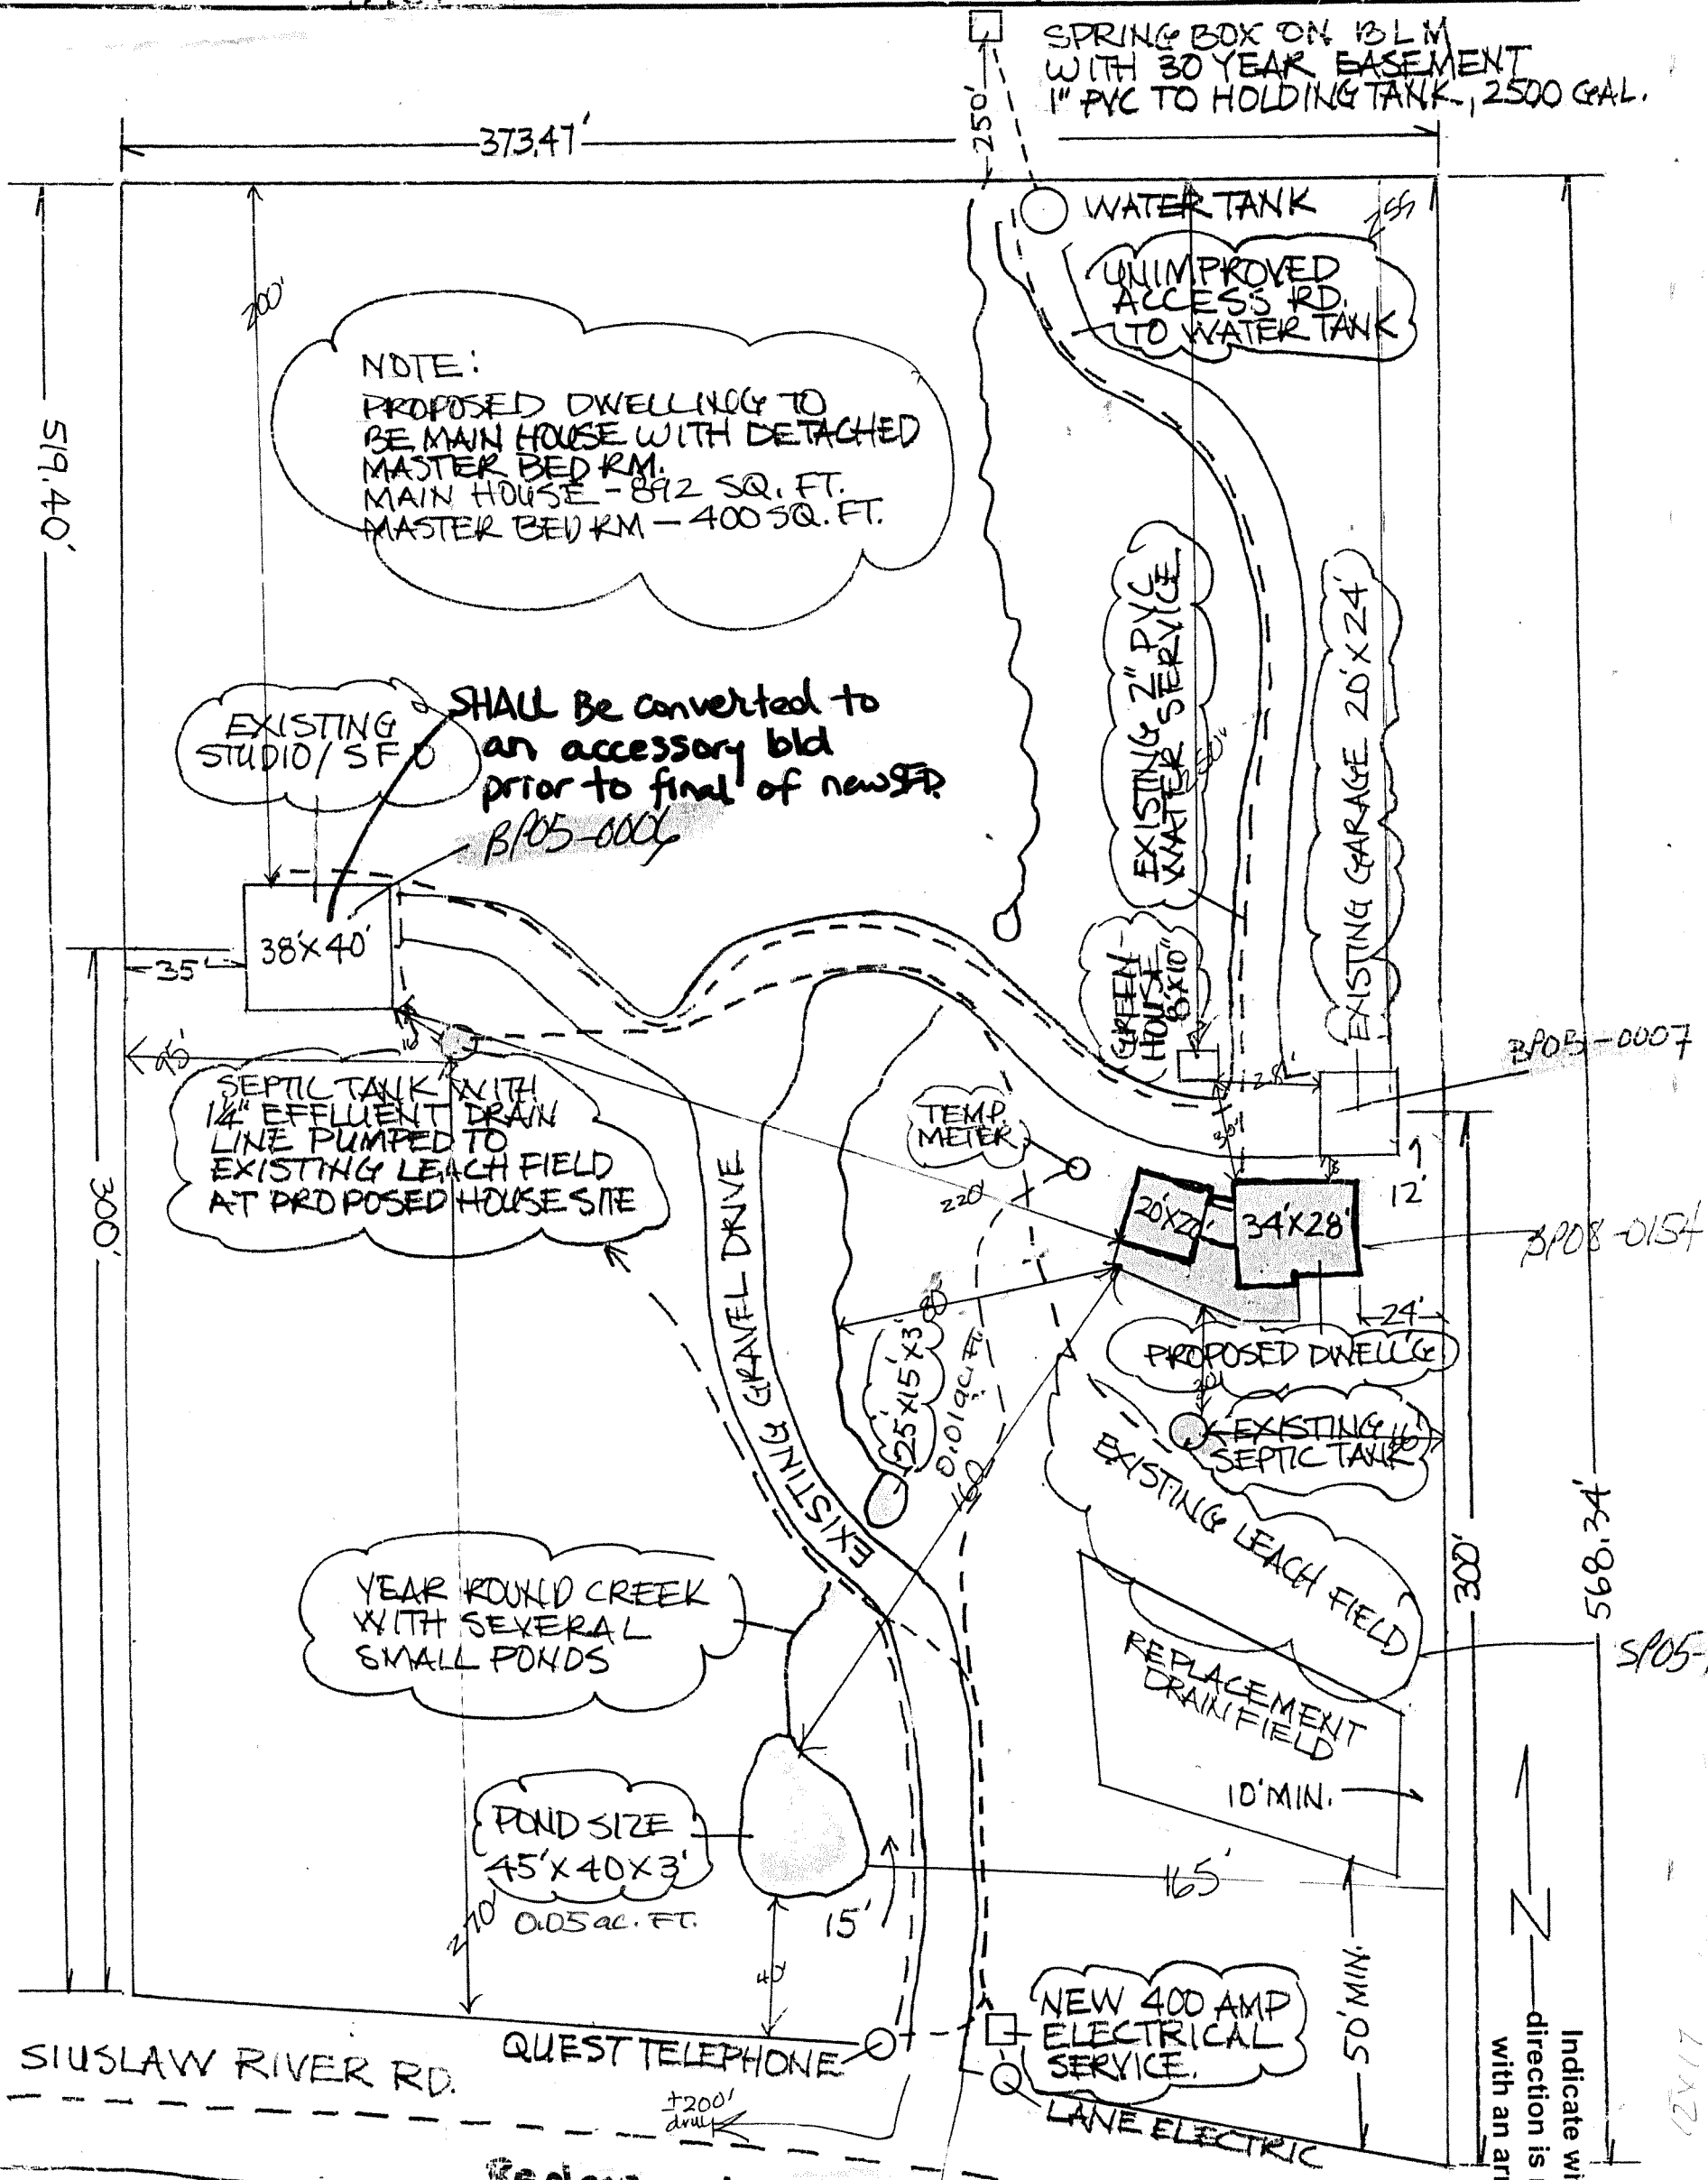 SPRING BOX ON BLM
WITH 30 YEAR EASEMENT
1" PVC TO HOLDING TANK, 2500 GAL.
250'
373.47'
WATER TANK
255
UNIMPROVED
ACCESS RD.
TO WATER TANK
200'
519.40'
NOTE:
PROPOSED DWELLING TO
BE MAIN HOUSE WITH DETACHED
MASTER BED RM.
MAIN HOUSE - 892 SQ. FT.
MASTER BED RM - 400 SQ. FT.
EXISTING
STUDIO/SFD
SHALL Be converted to
an accessory bld
prior to final of new SFD.
BP05-0006
EXISTING 2" PVC
WATER SERVICE
EXISTING GARAGE 20'X24'
GREEN
HOUSE
8'X10"
38'X40'
35'
25'
SEPTIC TANK WITH
1¼" EFFLUENT DRAIN
LINE PUMPED TO
EXISTING LEACH FIELD
AT PROPOSED HOUSE SITE
300'
TEMP.
METER
BP05-0007
28'
30'
12'
220'
20'X20'
34'X28'
BP08-0154
80'
24'
PROPOSED DWELL'G
20'
EXISTING
SEPTIC TANK
16'
25'X15'X3'
0.01 ac. Ft.
160
EXISTING GRAVEL DRIVE
EXISTING LEACH FIELD
REPLACEMENT
DRAINFIELD
10' MIN.
300'
598.34'
SP05-
YEAR ROUND CREEK
WITH SEVERAL
SMALL PONDS
POND SIZE
45'X40X3'
0.05 ac. FT.
270'
15'
165'
40'
50' MIN.
N
NEW 400 AMP
ELECTRICAL
SERVICE.
QUEST TELEPHONE
LANE ELECTRIC
SIUSLAW RIVER RD.
±200'
Indicate wi
direction is
with an ar